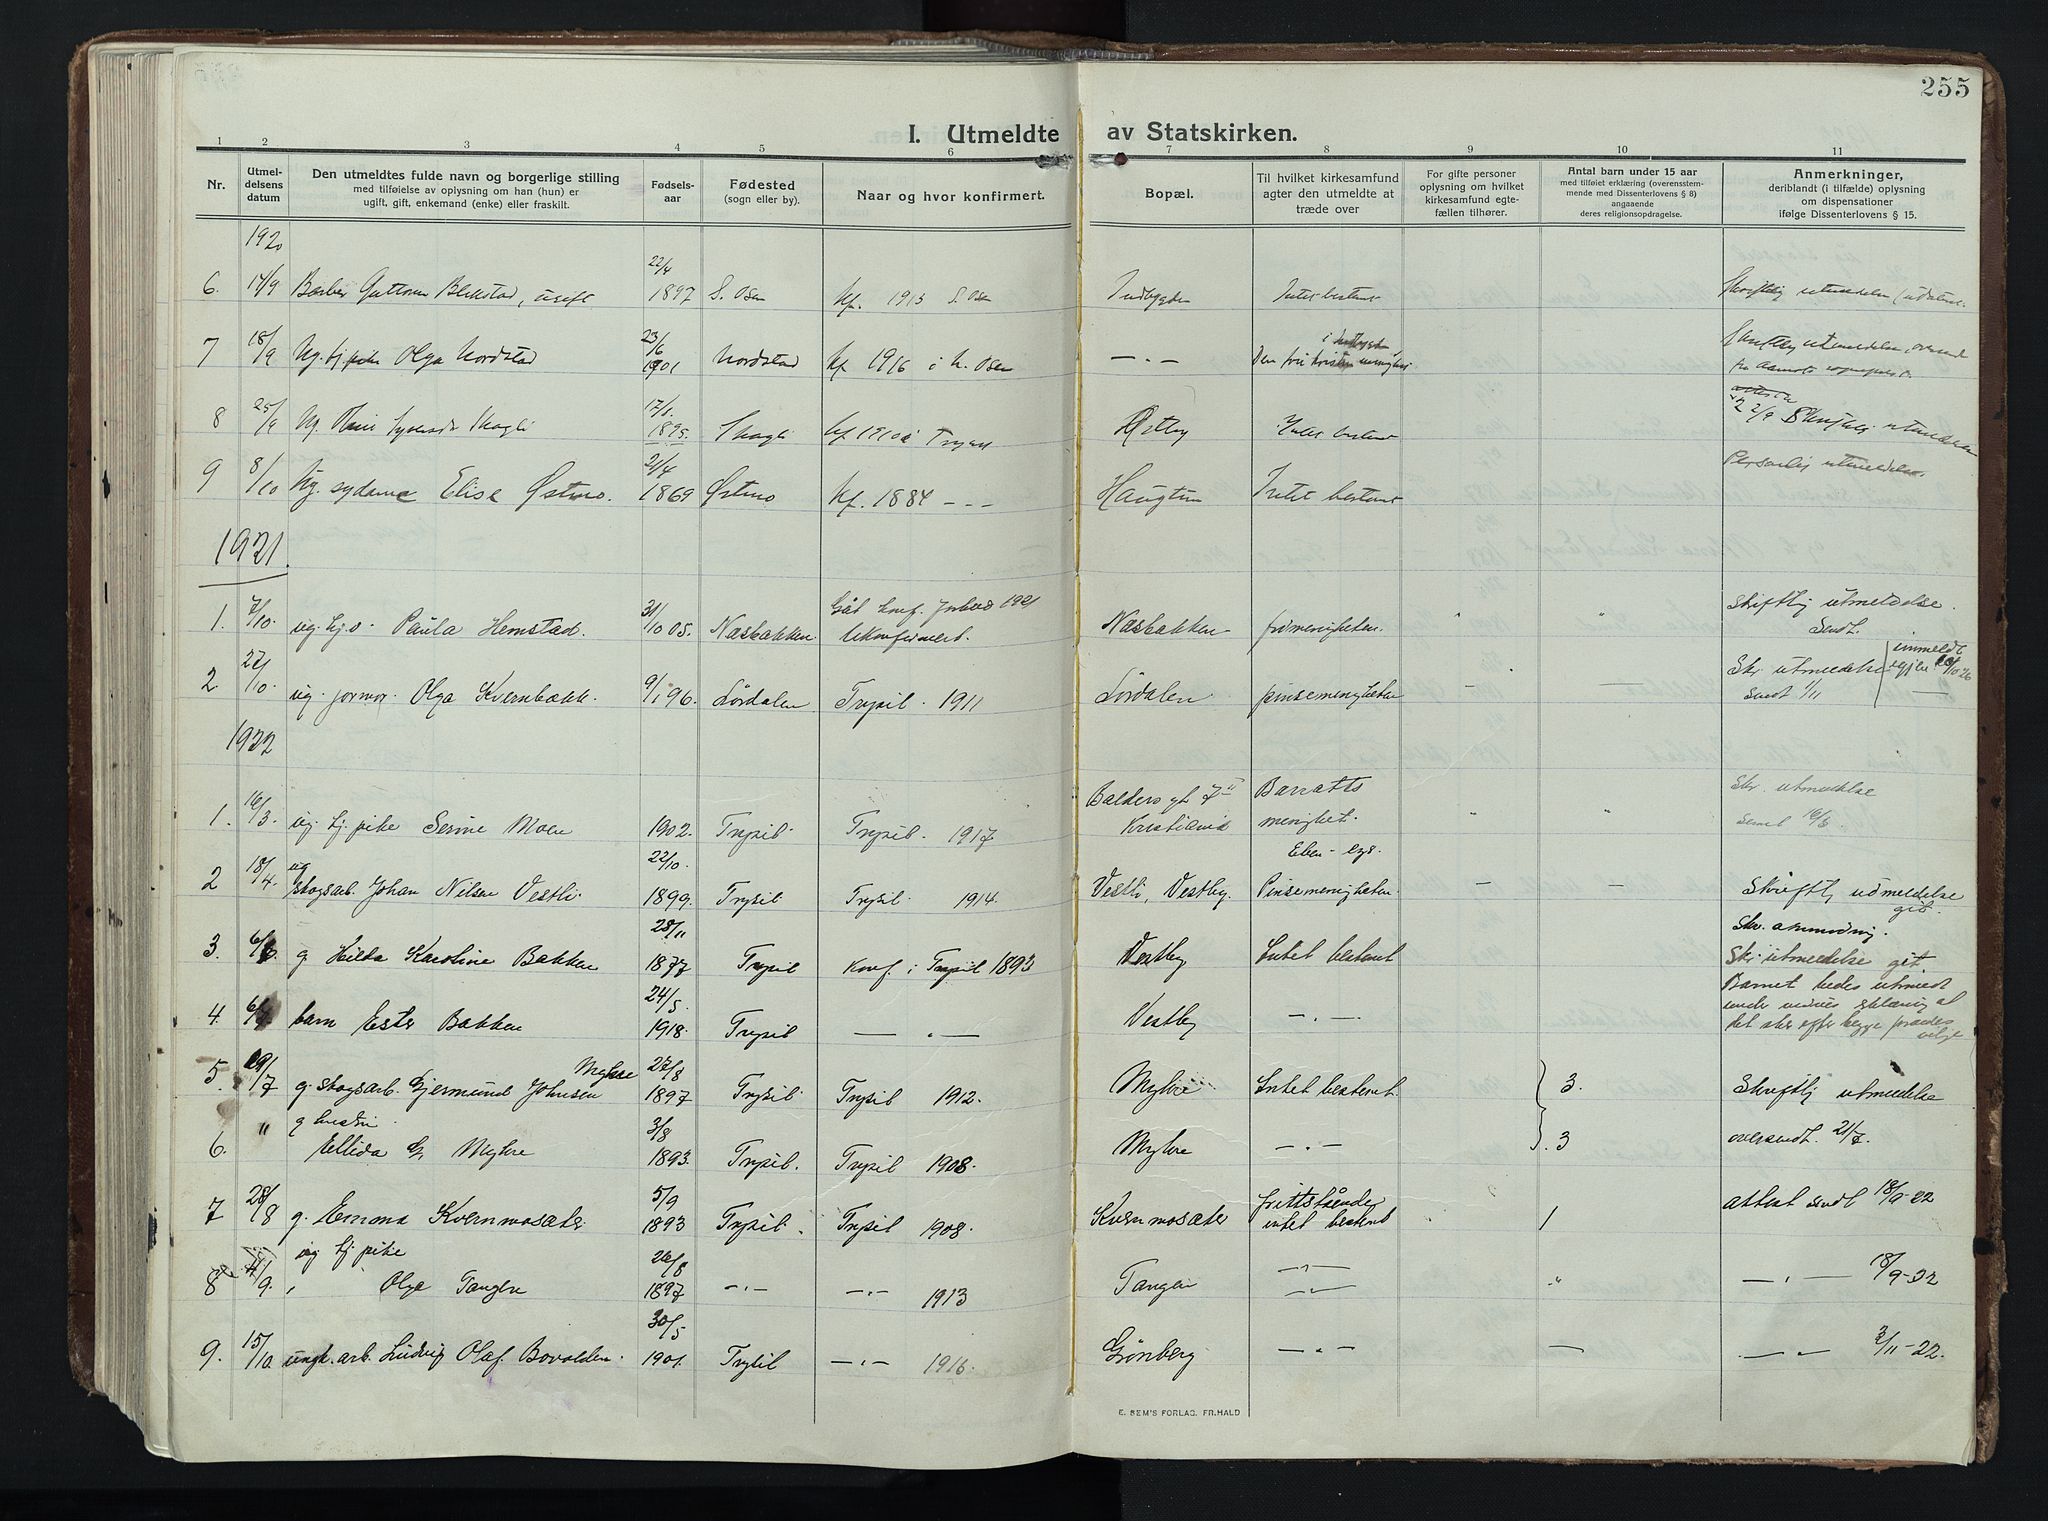 255
I. Utmeldte av Statskirken.
1 2 3 4 5 6 7 8 9 10 11
Nr.
Utmel-
delsens
datum
Den utmeldtes fulde navn og borgerlige stilling
med tilføielse av oplysning om han (hun) er
ugift, gift, enkemand (enke) eller fraskilt.
Fødsels-
aar
Fødested
(sogn eller by).
Naar og hvor konfirmert.
Bopæl.
Til hvilket kirkesamfund
agter den utmeldte at
træde over
For gifte personer
oplysning om hvilket
kirkesamfund egte-
fællen tilhører.
Antal barn under 15 aar
med tilføiet erklæring (overensstem-
mende med Dissenterlovens § 8)
angaaende
deres religionsopdragelse.
Anmerkninger,
deriblandt (i tilfælde) oplysning
om dispensationer
ifølge Dissenterlovens § 15.
1920
22/4
6. 14/9 Blekstad, 1897 S. Osen kf. 1913 S. Osen Intet bestemt Skriftlig utmeldelse
23/6
7 18/9 Olga Nordstad 1901 Nordstad kf 1916 i N. Osen — " — Den frie kristen
17/1
8 25/9 Ug. Skogli 1895. Skogli kf 1910 i Trysil Intet bestemt utmeldelse
21/4
9 8/10 Ug. sydame Elise Østmo. 1869 Østmo kf. 1884 - - - Haugtun Intet bestemt Personlig utmeldelse.
1921.
1. 7/10. ug. Paula Hemstad. 31/10 05. Næsbakken Ukonfirmert. Næsbakken frimenigheten. " " Skriftlig utmeldelse.
Sendt.
2 27/10. ug. Olga Kvernbakk. 9/1 96. Lørdalen Trysil. 1911 Lørdalen pinsemenigheten - — Skr. utmeldelse
sendt 1/11
innmeldt
igjen 10/10 26
1922
1. 16/3. ug. tj. pike Serine Moen 1902. Trysil. Trysil. 1917
Balders gt 7 II
Kristiania
Barratts
menighet.
Eben-ezer.
" " Skr. utmeldelse
sendt 16/3.
22/10.
2 18/4. ug skogsarb. Johan Nilsen Vestli. 1899. Trysil Trysil. 1914. Vestli, Vestby. Pinsemenigheten. - - Skriftlig utmeldelse
git.
Skr. anmodning.
28/11
3. 6/6 g. Hilda Karoline Bakken 1877 Trysil Konf. i Trysil 1893 Vestby Intet bestemt Skr. utmeldelse git
24/5
4. barn Ester Bakken 1918. Trysil — . — Vestby — . —
Barnet bedes utmeldt
det sker efter begge
5. 19/7 g. skogsarb. Gjermund Johnsen Myhre 27/8 1897 Trysil Trysil 1912. Myhre Intet bestemt. 3. Skriftlig utmeldelse
6. " g hustru Ellida G. Myhre 3/8 1893. Trysil. Trysil 1908. Myhre — . — 3 oversendt. 21/7.
7 28/8 g. Emma Kvernmosæter 5/9 1893 Trysil. Trysil 1908. Kvernmosæter frittståender
intet bestemt 1 Attest sendt 18/9 22
8 11/9. ug tj pike Olga Tangen 26/8 1897 — . — — . — 1913 Tangen — " — " — . — 18/9-22
9. 15/10 ungk. arb. Ludvig Olaf. Bovolden. 30/5 1901. Trysil — . — 1916. Grønberg — . — — — . — 2/11-22.
E. SEM'S FORLAG. FR.HALD